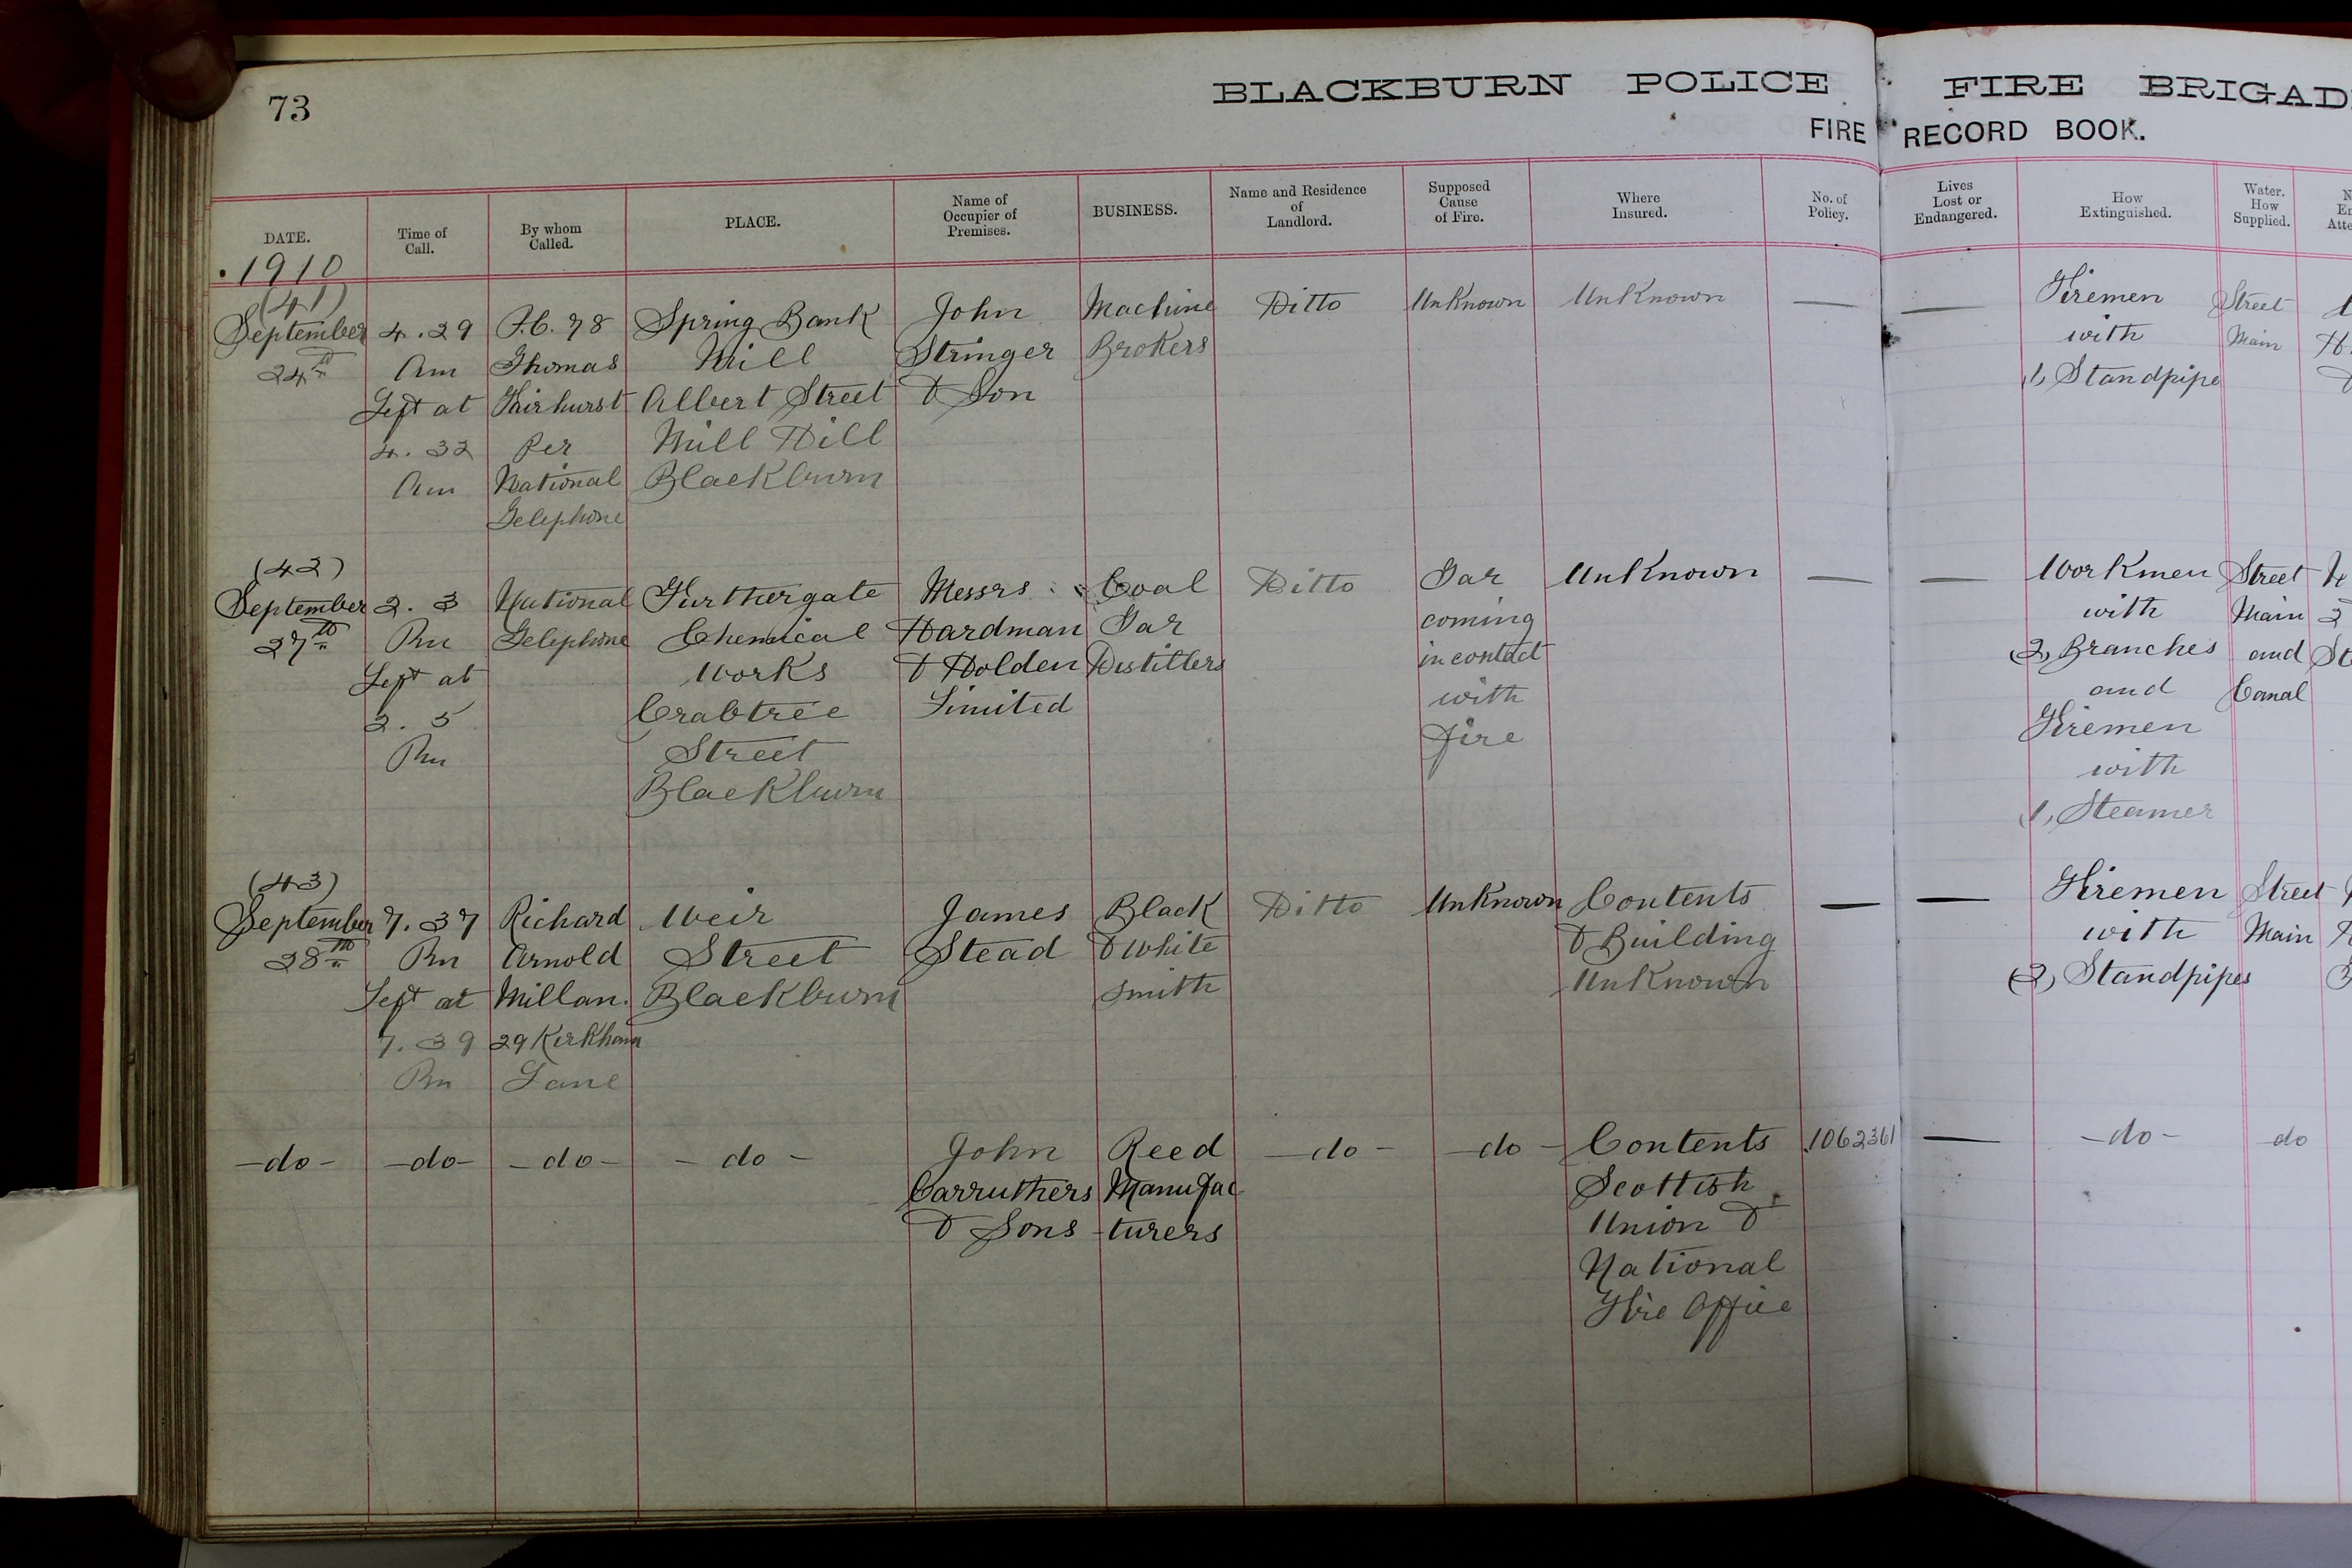 73
BLACKBURN POLICE FIRE BRIGAD
FIRE RECORD BOOK.
DATE.
Time of Call.
By whom Called.
PLACE.
Name of Occupier of Premises.
BUSINESS.
Name and Residence of Landlord.
Supposed Cause of Fire.
Where Insured.
No. of Policy.
Lives Lost or Endangered.
How Extinguished.
Water. How Supplied.
1910
(41)
September
24th
4.29
Am
Left at
4.32
Am
P.C. 78
Thomas
Fairhurst
Per
National
Telephone
Spring Bank
Mill
Albert Street
Mill Hill
Blackburn
John
Stringer
& Son
Machine
Brokers
Ditto
Unknown
Unknown
—
—
Firemen
with
(1) Standpipe
Street
Main
(42)
September
27th
2.3
Pm
Left at
2.5
Pm
National
Telephone
Furthergate
Chemical
Works
Crabtree
Street
Blackburn
Messrs
Hardman
& Holden
Limited
Coal
Tar
Distillers
Ditto
Tar
coming
in contact
with
fire
Unknown
—
—
Workmen
with
(2) Branches
and
Firemen
with
(1) Steamer
Street
Main
and
Canal
(43)
September
28th
7.37
Pm
Left at
7.39
Pm
Richard
Arnold
Millan.
29 Kirkham
Lane
Weir
Street
Blackburn
James
Stead
Black
& White
smith
Ditto
Unknown
Contents
& Building
Unknown
—
—
Firemen
with
(2) Standpipes
Street
Main
-do-
-do-
-do-
-do-
John
Carruthers
& Sons
Reed
Manufac
-turers
-do-
-do-
Contents
Scottish
Union &
National
Fire Office
1062361
—
-do-
-do